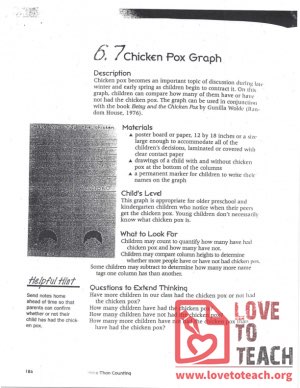 6.7 Chicken Pox Graph
Description
Chicken pox becomes an important topic of discussion during late
winter and early spring as children begin to contract it. On this
graph, children can compare how many of them have or have
not had the chicken pox. The graph can be used in conjunction
with the book Betsy and the Chicken Pox by Gunilla Wolde (Ran-
dom House, 1976).
Materials
▲ poster board or paper, 12 by 18 inches or a size
large enough to accommodate all of the
children's decisions, laminated or covered with
clear contact paper
▲ drawings of a child with and without chicken
pox at the bottom of the columns
▲ a permanent marker for children to write their
names on the graph
Child's Level
This graph is appropriate for older preschool and
kindergarten children who notice when their peers
get the chicken pox. Young children don't necessarily
know what chicken pox is.
What to Look For
Children may count to quantify how many have had
chicken pox and how many have not.
Children may compare column heights to determine
whether more people have or have not had chicken pox.
Some children may subtract to determine how many more name
tags one column has than another.
Helpful Hint
Send notes home
ahead of time so that
parents can confirm
whether or not their
child has had the chick-
en pox.
Questions to Extend Thinking
Have more children in our class had the chicken pox or not had
the chicken pox?
How many children have had the chicken pox?
How many children have not had the
How many more children have not had the chicken pox than
have had the chicken pox?
186 More Than Counting
LOVE
TO
TEACH
www.lovetoteach.org